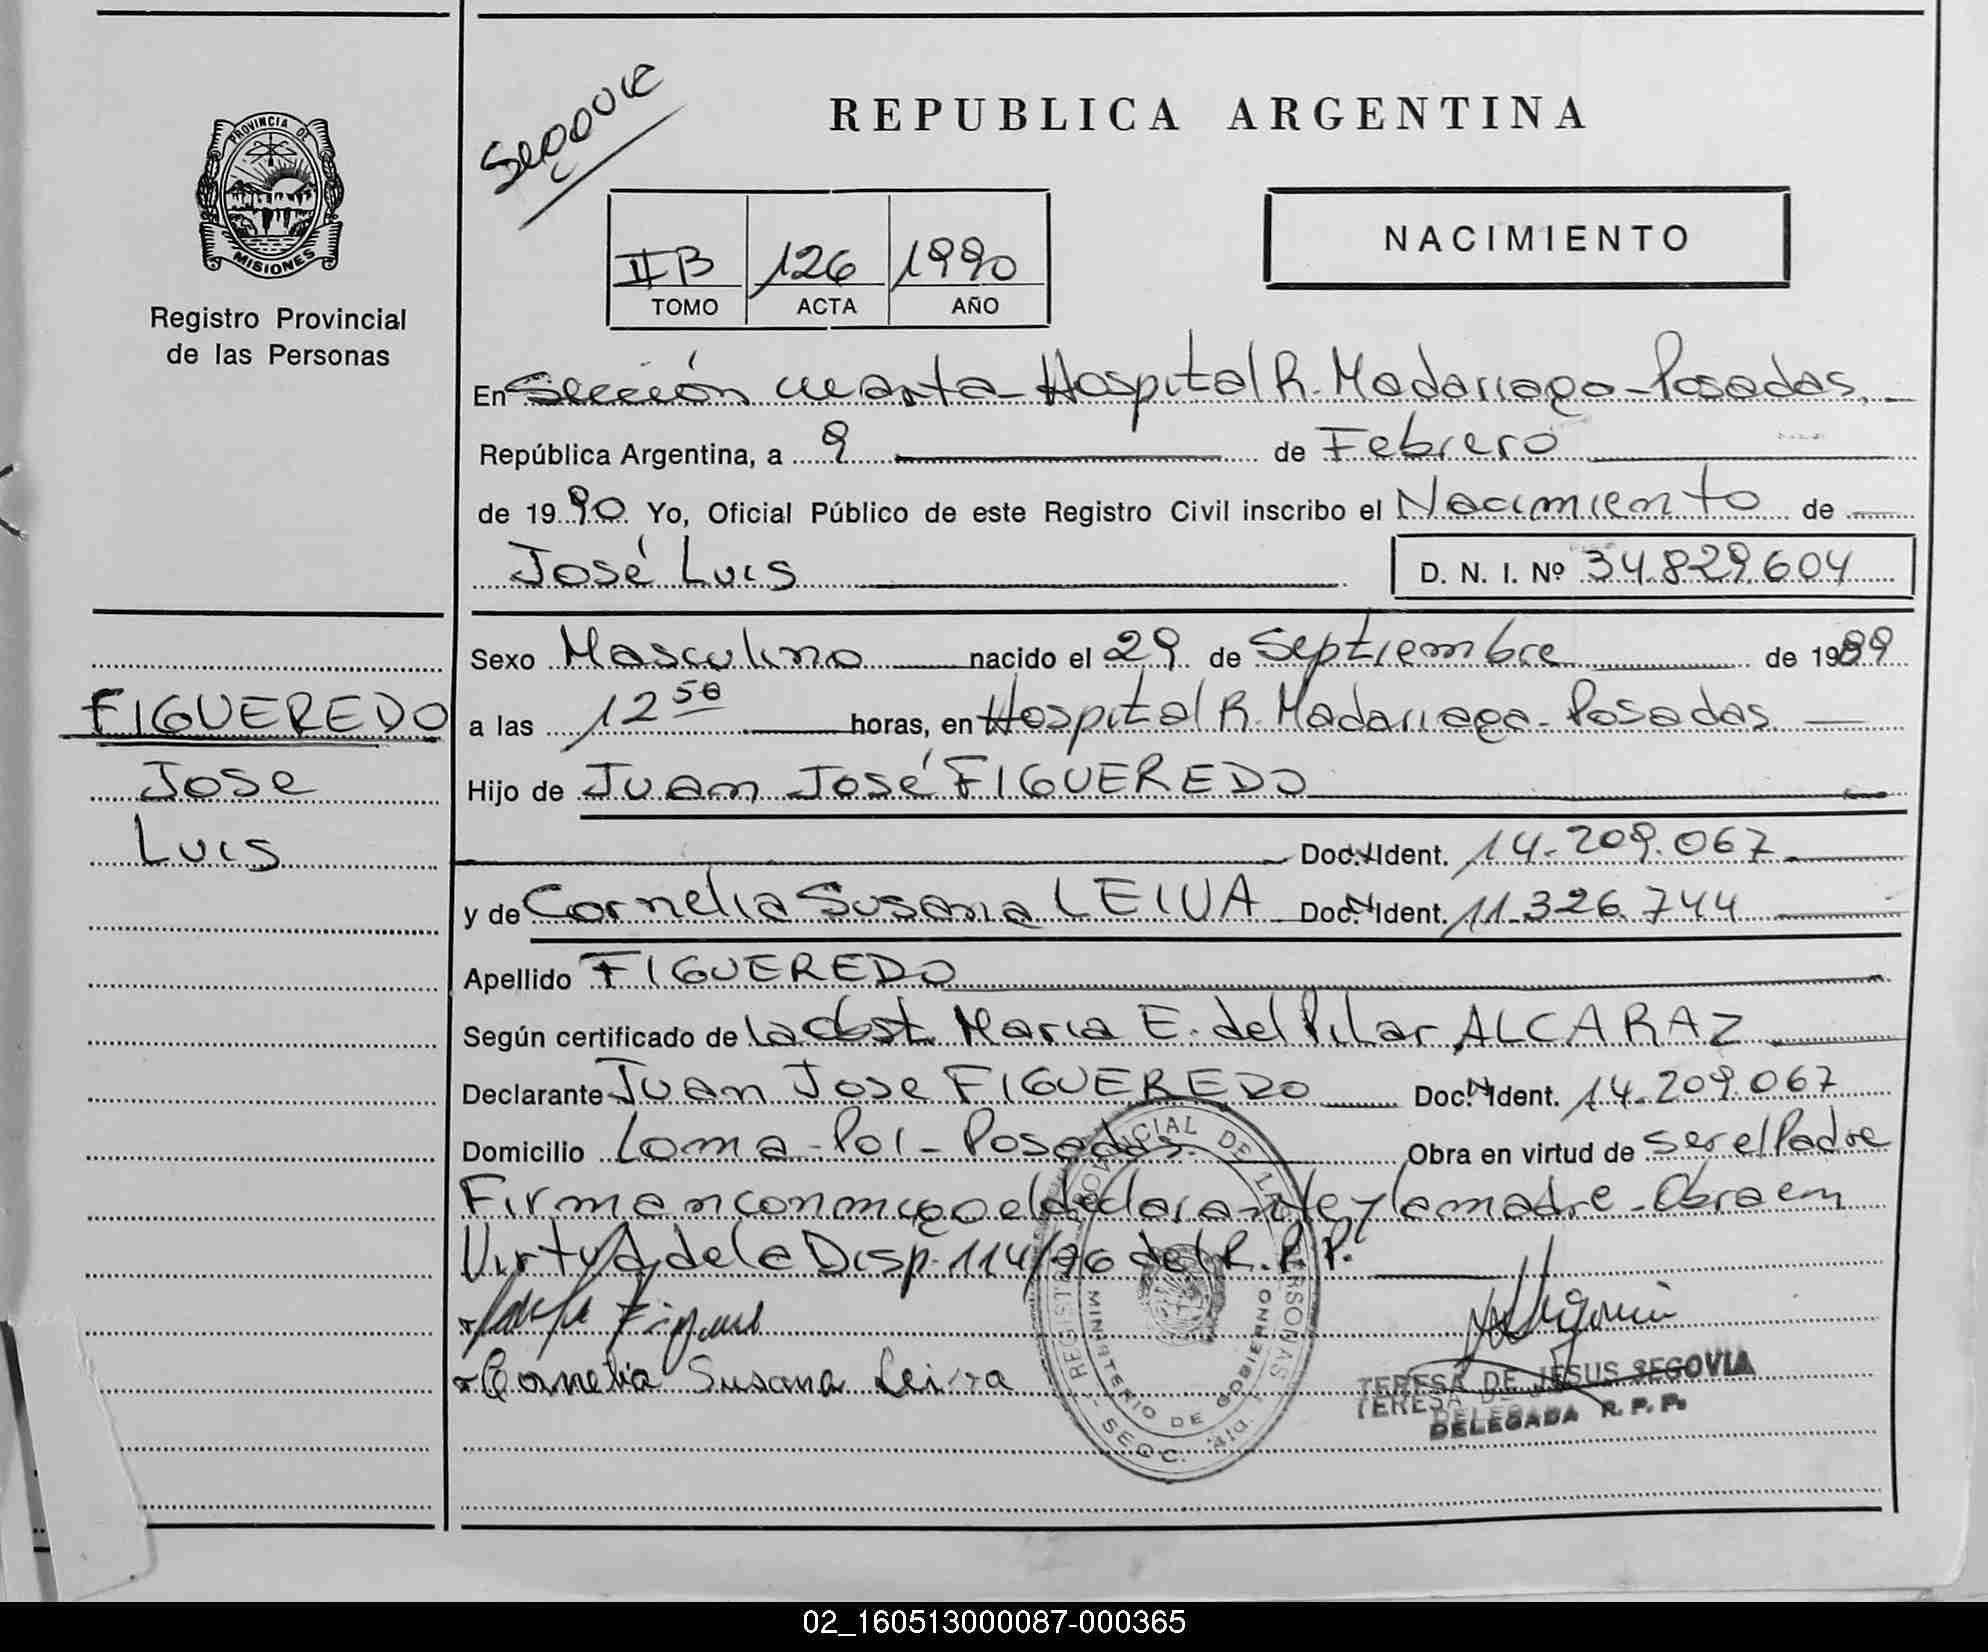 PROVINCIA DE
MISIONES
Registro Provincial
de las Personas
REPUBLICA ARGENTINA
IIB 126 1990
TOMO ACTA AÑO
NACIMIENTO
En Sección cuarta - Hospital R. Madariaga - Posadas.
República Argentina, a 9 de Febrero
de 1990 Yo, Oficial Público de este Registro Civil inscribo el Nacimiento de
José Luis D. N. I. Nº 34.829.604
Sexo Masculino nacido el 29 de Septiembre de 1989
FIGUEREDO
Jose
Luis
a las 12 50 horas, en Hospital R. Madariaga - Posadas.
Hijo de Juan José FIGUEREDO
Doc. N Ident. 14.209.067
y de Cornelia Susana LEIVA Doc. N Ident. 11.326.744
Apellido FIGUEREDO
Según certificado de la Obst. Maria E. del Pilar ALCARAZ
Declarante Juan Jose FIGUEREDO Doc. N Ident. 14.209.067
Domicilio Loma - Poi - Posadas Obra en virtud de ser el Padre
Firman conmigo el declarante y la madre - Obra en
Virtud de la Disp. 114/76 del R. P. P.
Cornelia Susana Leiva
REGISTRO PROVINCIAL DE LAS PERSONAS
MINISTERIO DE GOBIERNO
TERESA DE JESUS SEGOVIA
DELEGADA R. P. P.
02_160513000087-000365